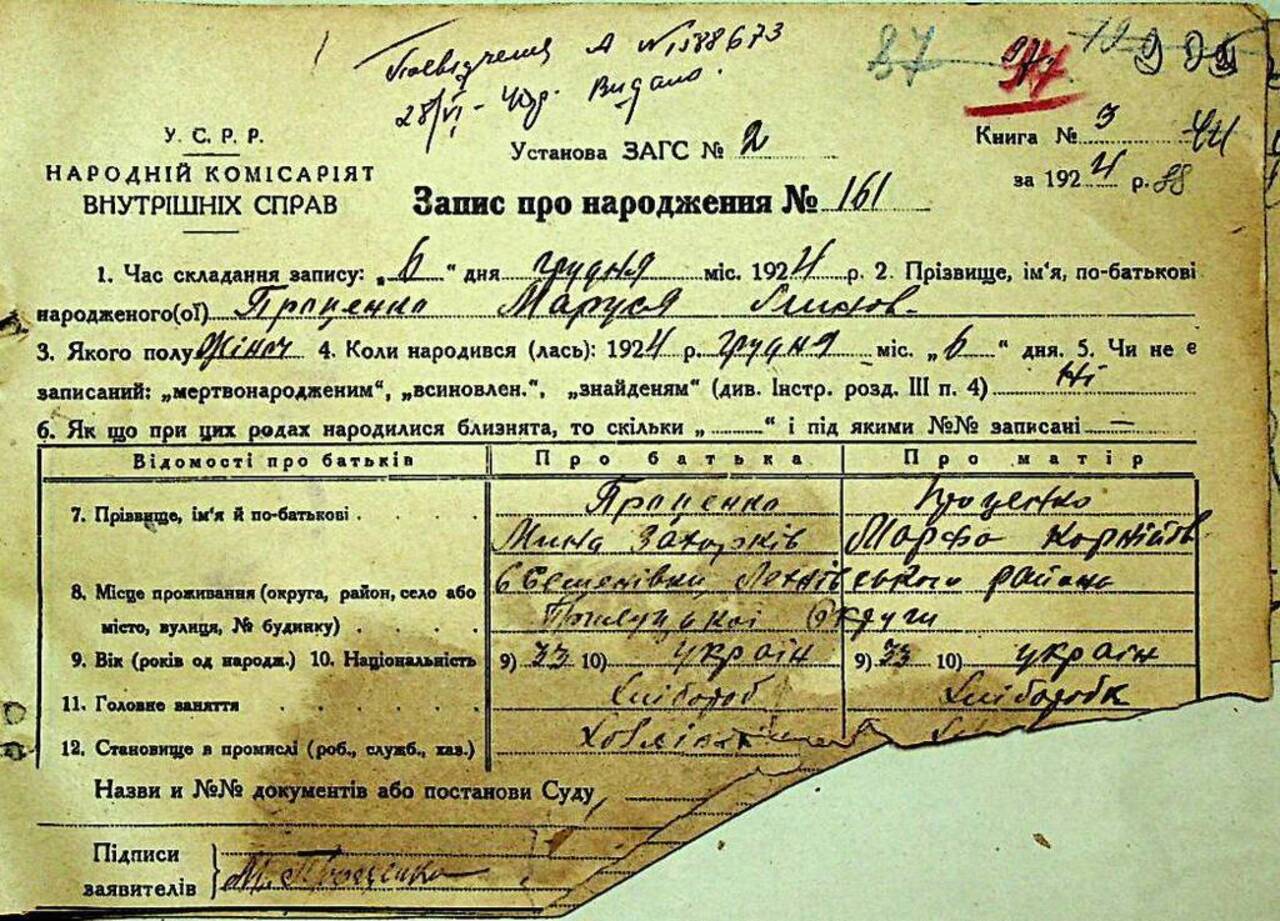 А №1588673
28/VI - 40р. Видано.
97
У. С. Р. Р.
НАРОДНІЙ КОМІСАРІЯТ
ВНУТРІШНІХ СПРАВ
Установа ЗАГС № 2
Книга № 3 44
за 1924 р. 88
Запис про народження № 161
1. Час складання запису: „6" дня грудня міс. 1924 р. 2. Прізвище, ім'я, по-батькові
народженого(ої) Проценко Маруся
3. Якого полу жіноч 4. Коли народився (лась): 1924 р. грудня міс. „6" дня. 5. Чи не є
записаний: „мертвонародженим“, „всиновлен.“, „знайденям“ (див. Інстр. розд. III п. 4) Ні
6. Як що при цих родах народилися близнята, то скільки „ “ і під якими №№ записані —
Відомості про батьків Про батька Про матір
7. Прізвище, ім'я й по-батькові Проценко Проценко
Мина Захорків Марфа Корнійов
8. Місце проживання (округа, район, село або с Семенівки ського района
місто, вулиця, № будинку) Прилуцької Округи
9. Вік (років од народж.) 10. Національність 9) 33 10) україн 9) 33 10) україн
11. Головне заняття Хлібороб Хлібородк
12. Становище в промислі (роб., служб., хаз.)
Назви и №№ документів або постанови Суду
Підписи
заявителів М. Проценко